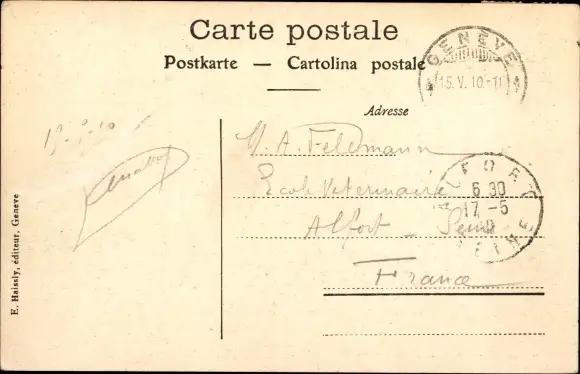 Carte postale
Postkarte — Cartolina postale
GENÈVE
15.V.10.-11
Adresse
M. A. Feldmann
Ecole Veterinaire
Alfort - Seine
France
ALFORT
6 30
17 -5
SEINE
E. Haissly, éditeur, Geneve